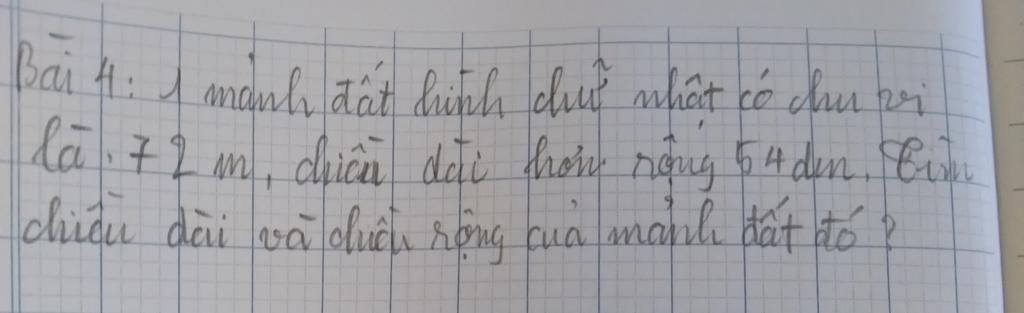 Bài 4: 1 mảnh đất hình chữ nhật có chu vi
là 72 m, chiều dài hơn rộng 54 dm. Tìm
chiều dài và chiều rộng của mảnh đất đó?